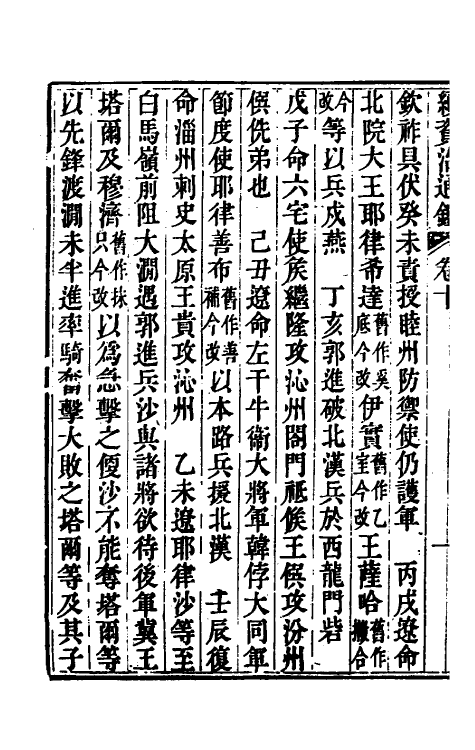 續資治通鑑 卷十
欽祚具伏癸未責授睦州防禦使仍護軍　丙戌遼命
北院大王耶律希達舊作奚底今改伊實舊作乙室今改王薩哈舊作撒合
今改等以兵戍燕　丁亥郭進破北漢兵於西龍門砦
戊子命六宅使侯繼隆攻沁州閤門祗候王僎攻汾州
僎侁弟也　己丑遼命左千牛衛大將軍韓侼大同軍
節度使耶律善布舊作善補今改以本路兵援北漢　壬辰復
命淄州刺史太原王貴攻沁州　乙未遼耶律沙等至
白馬嶺前阻大澗遇郭進兵沙與諸將欲待後軍冀王
塔爾及穆濟舊作抹只今改以爲急擊之便沙不能奪塔爾等
以先鋒渡澗未半進率騎奮擊大敗之塔爾等及其子